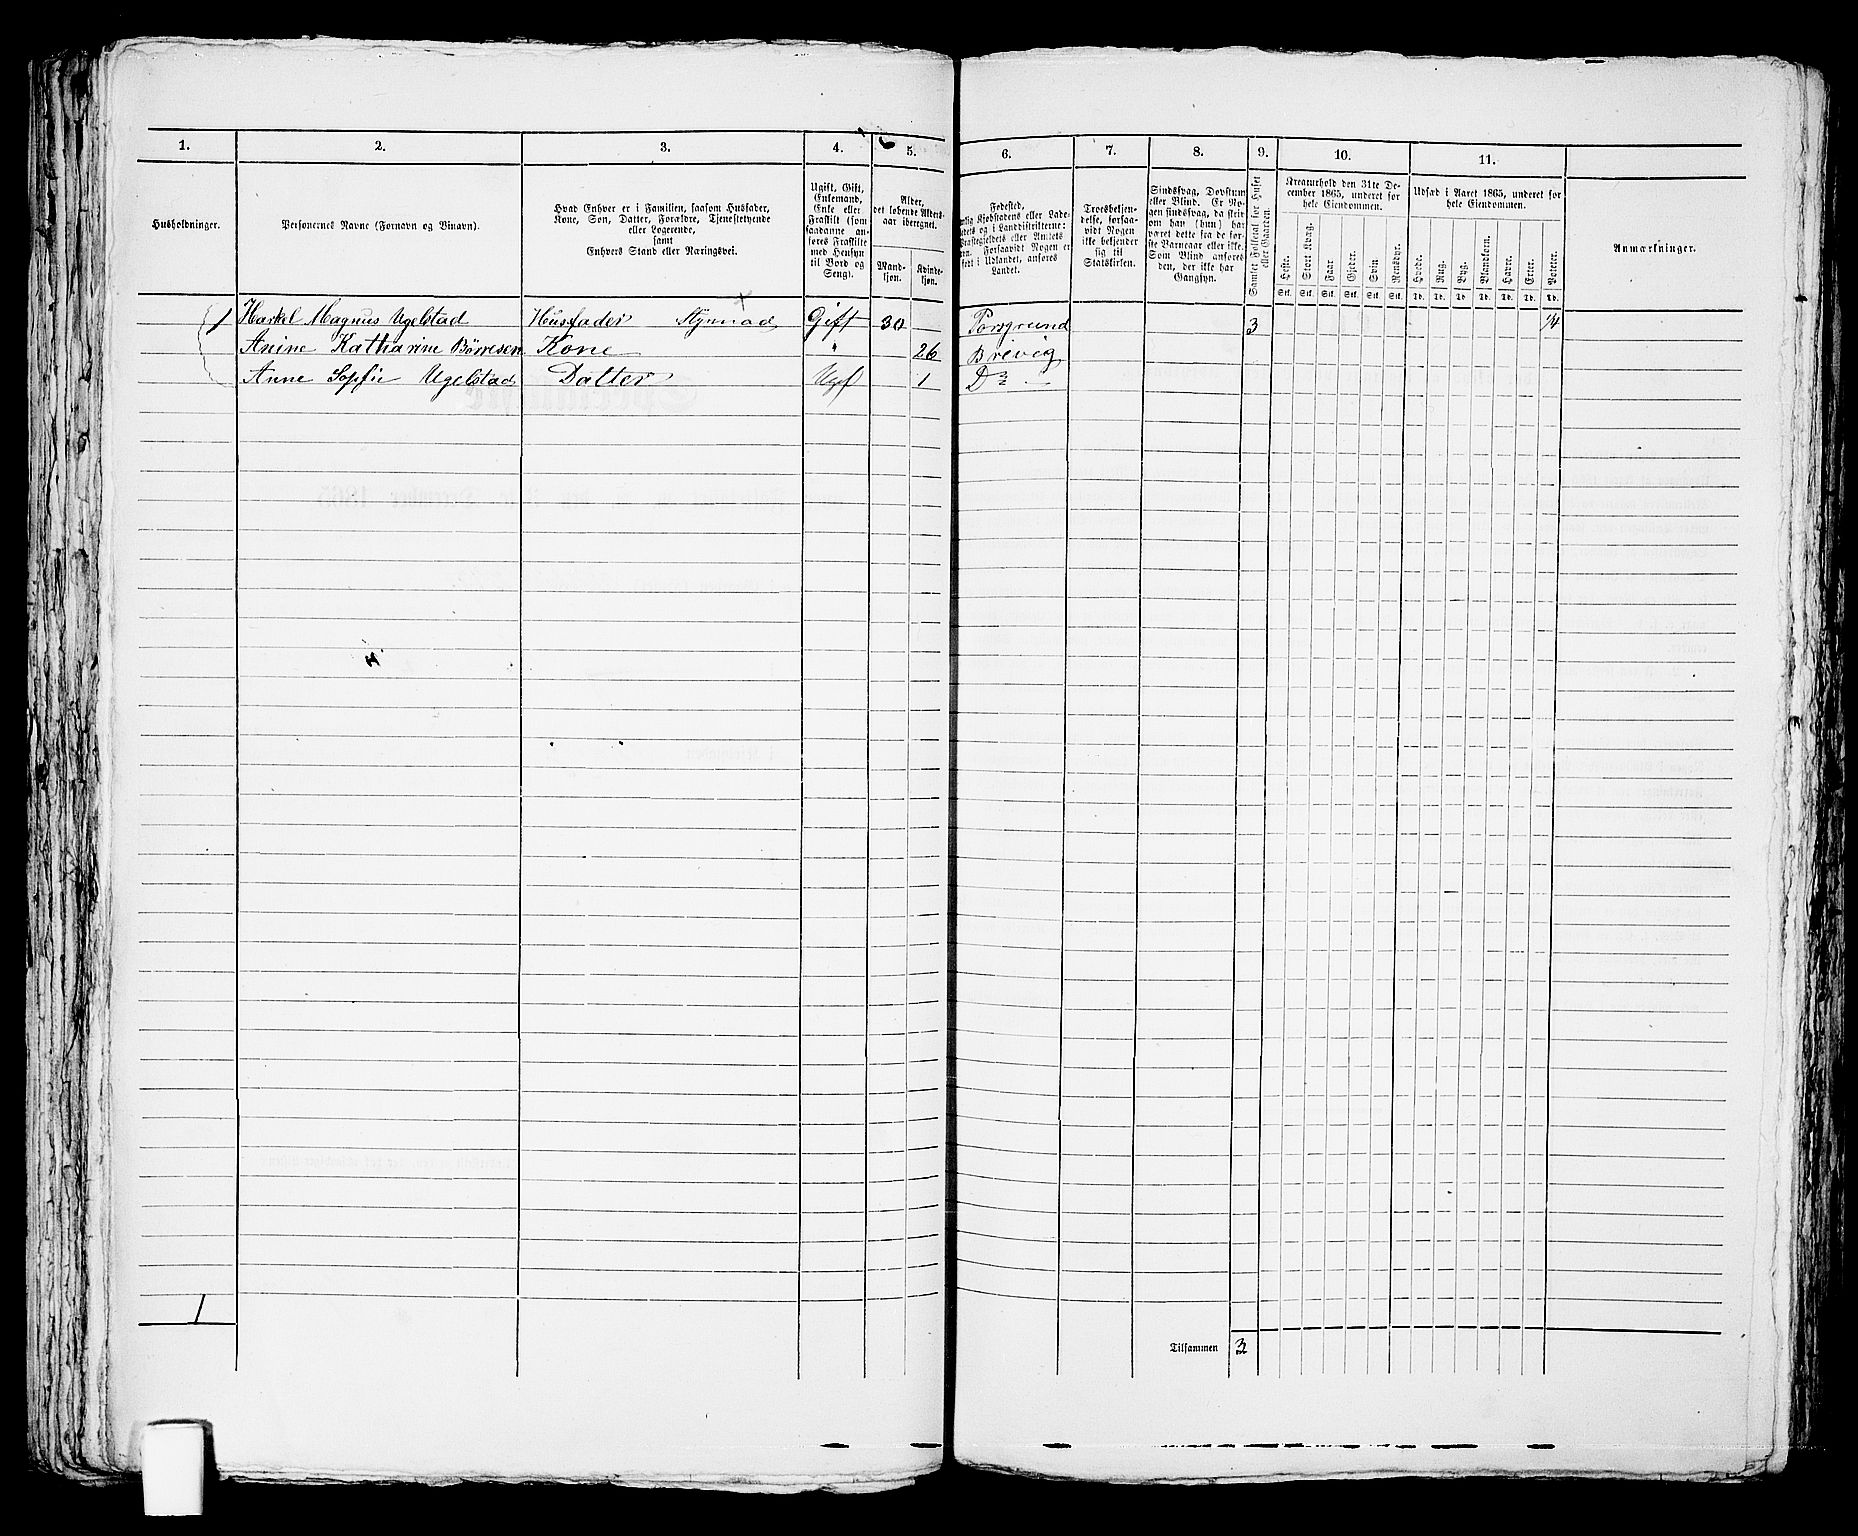 1. 2. 3. 4. 5. 6. 7. 8. 9. 10. 11.
Husholdninger.
Personernes Navne (Fornavn og Tilnavn).
Hvad Enhver er i Familien, saasom Husfader,
Kone, Søn, Datter, Forældre, Tjenestetyende
eller Logerende,
samt
Enhvers Stand eller Næringsvei.
Ugift, Gift,
Enkemand,
Enke eller
Fraskilt (som
saadanne an-
føres Fraskilte
med Hensyn
til Bord og
Seng).
Alder,
det løbende Alders-
aar iberegnet.
Mand-
kjøn.
Kvinde-
kjøn.
Fødested,
Kjøbstadens eller Lade-
stedets og i Landdistrikterne:
Præstegjeldets eller Amtets
Navn. Forsaavidt Nogen er
født i Udlandet, anføres
Landet.
Troesbekjen-
delse, forsaa-
vidt Nogen
ikke bekjender
sig til
Statskirken.
Sindssvag, Døvstum
eller Blind. Er No-
gen sindssvag, da skriv
om han (hun) har
været dette fra de før-
ste Barneaar eller ikke.
Som Blind ansføres
den, der ikke har
Gangsyn.
Samlet Folketal for Huset
eller Gaarden.
Kreaturhold den 31te De-
cember 1865, underet for
hele Eiendommen.
Heste. Stort Kvæg. Faar Gjeder. Svin Rensdyr.
Stk. Stk. Stk. Stk. Stk. Stk.
Udsæd i Aaret 1865, underet for
hele Eiendommen.
Hvede. Rug. Byg. Blandkorn. Havre. Erter. Poteter.
Td. Td. Td. Td. Td. Td. Td.
Anmærkninger.
1 Harkel Magnus Ugelstad Husfader Gift 30 Porsgrund 3 1/4
Anine Katharine Børresen Kone " 26 Brevig
Anne Sopfie Ugelstad Datter Ugf 1 Do
1
Tilsammen 3